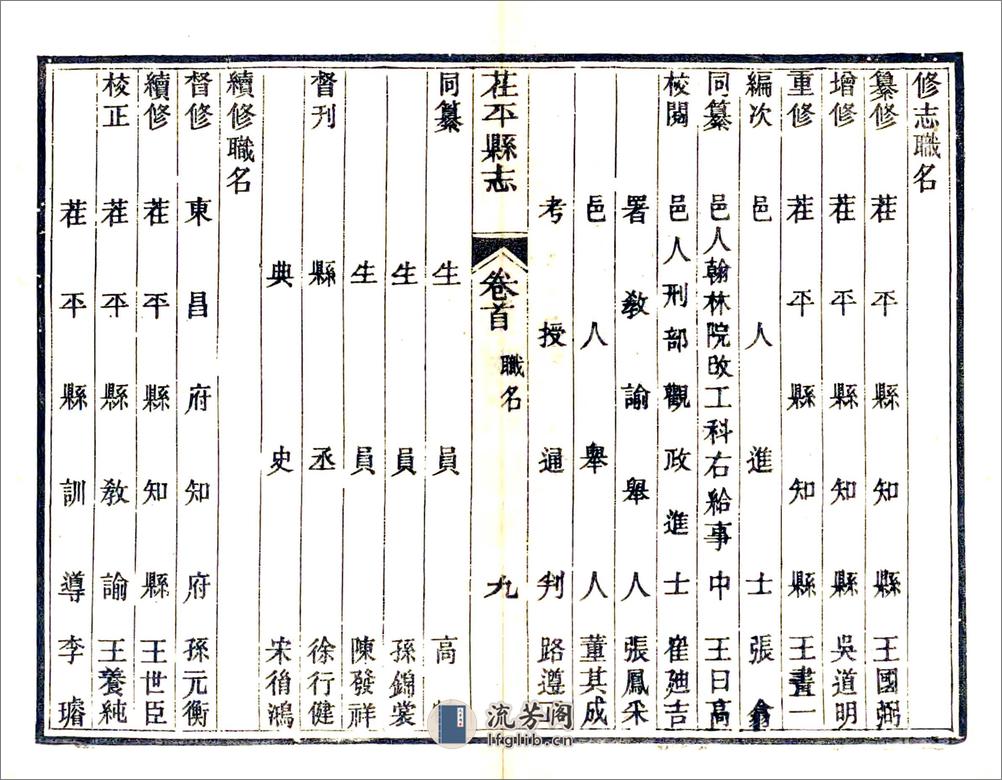 修志職名
纂修 茌平縣知縣王國弼
增修 茌平縣知縣吳道明
重修 茌平縣知縣王畫一
編次 邑人進士張翕
同纂 邑人翰林院改工科右給事中王曰高
校閱 邑人刑部觀政進士崔廸吉
署教諭舉人張鳳采
邑人舉人董其成
考授通判路遵
茌平縣志 卷首 職名 九
同纂 生員高
生員孫錦裳
生員陳發祥
督刊 縣丞徐行健
典史宋脩鴻
續修職名
督修 東昌府知府孫元衡
續修 茌平縣知縣王世臣
校正 茌平縣教諭王養純
茌平縣訓導李璿
流芳閣
lfglib.cn